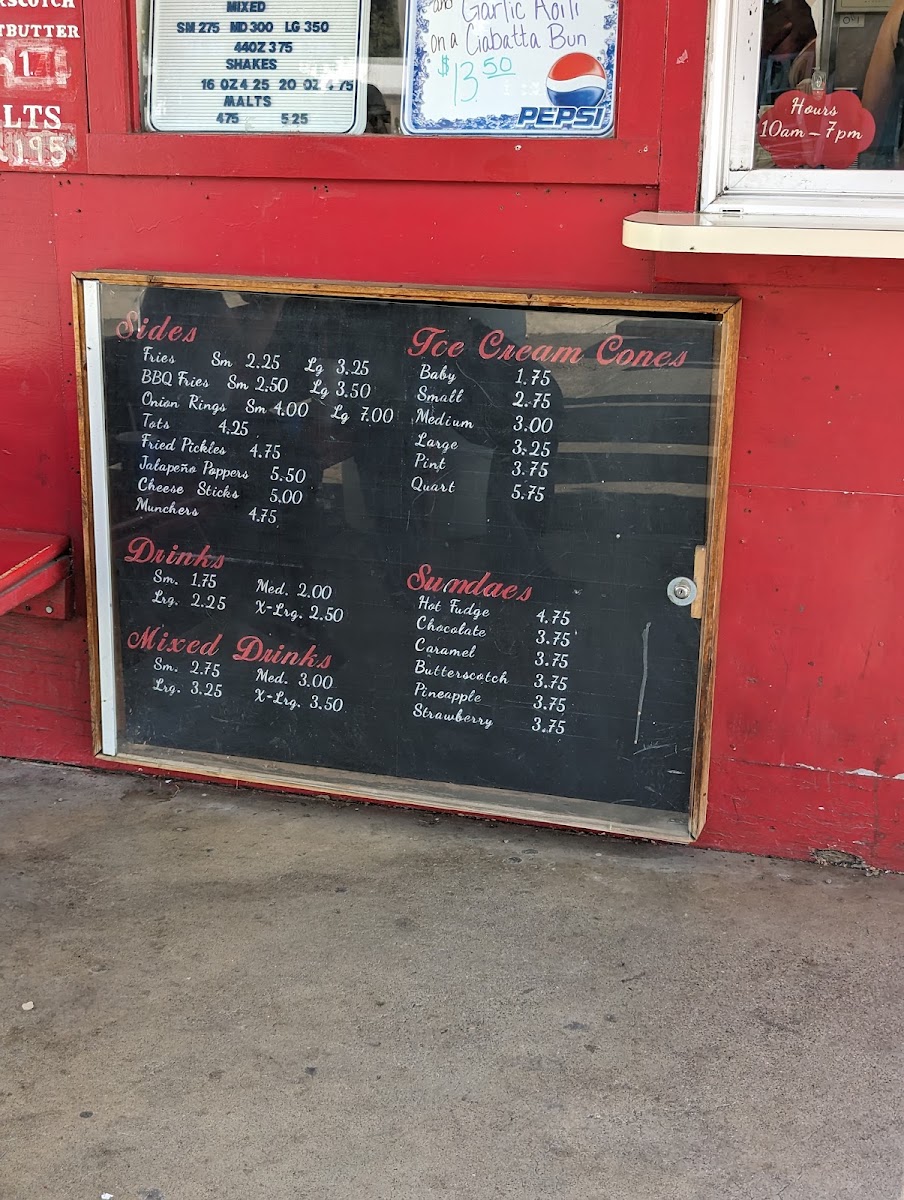 TBUTTER
LTS
195
MIXED
SM 275 MD 300 LG 350
44OZ 375
SHAKES
16 OZ 4 25 20 OZ 4 75
MALTS
475 5 25
and Garlic Aoili
on a Ciabatta Bun
$13.50
PEPSI
Hours
10am - 7pm
Sides
Fries Sm 2.25 Lg 3.25
BBQ Fries Sm 2.50 Lg 3.50
Onion Rings Sm 4.00 Lg 7.00
Tots 4.25
Fried Pickles 4.75
Jalapeño Poppers 5.50
Cheese Sticks 5.00
Munchers 4.75
Drinks
Sm. 1.75 Med. 2.00
Lrg. 2.25 X-Lrg. 2.50
Mixed Drinks
Sm. 2.75 Med. 3.00
Lrg. 3.25 X-Lrg. 3.50
Ice Cream Cones
Baby 1.75
Small 2.75
Medium 3.00
Large 3.25
Pint 3.75
Quart 5.75
Sundaes
Hot Fudge 4.75
Chocolate 3.75
Caramel 3.75
Butterscotch 3.75
Pineapple 3.75
Strawberry 3.75